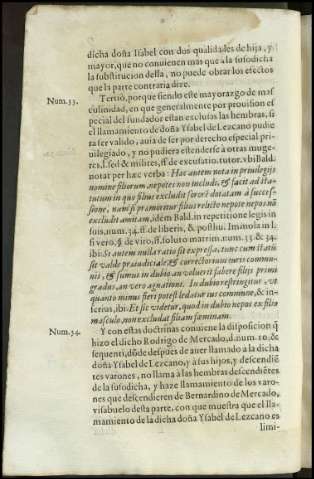 dicha doña Isabel con dos qualidades de hija, y
mayor, que no conuienen mas que a la susodicha
la substitucion della, no puede obrar los efectos
que la parte contraria dize.
Num. 33.
Tertiò, porque siendo este mayorazgo de mas
culinidad, en que generalmente por prouision es
pecial del fundador estan exclusas las hembras, si
el llamamiento de doña Ysabel de Lezcano pudie
ra ser valido, auia de ser por derecho especial pri-
uilegiado, y no pudiera estenderse à otras muge-
res, l. sed & milites, ff. de excusatio. tutor. vbi Bald.
notat per hæc verba: Hac autem nota in priuilegijs
nomine filiorum, nepotes non includi, & facit ad sta-
tutum in quo filius excludit sororē dotatam à succes-
sione, nam si præmoritur filius relicto nepote nepos nō
excludit amitam, idem Bald. in repetitione legis in
suis, num. 34. ff. de liberis, & posthu. Imnola in l.
si vero, §. de viro, ff. soluto matrim. num. 33. & 34.
ibi: Si autem nulla ratio sit expressa, tunc cum statu
sit valde præiudiciale, & correctorium iuris commu-
nis, & sumus in dubio an voluerit habere filijs primi
gradus, an vero agnationi. In dubio restringitur, vt
quanto minus fieri potest lædatur ius commune, & in-
ferius, ibi: Et sic videtur, quod in dubio nepos ex filio
masculo, non excludat filiam fæminam.
Num. 34.
Y con estas doctrinas conuiene la disposicion q̄
hizo el dicho Rodrigo de Mercado, d. num. 10, &
sequenti, dōde despues de auer llamado a la dicha
doña Ysabel de Lezcano, y à sus hijos, y descendiē
tes varones, no llama à las hembras descendiētes
de la susodicha, y haze llamamiento de los varo-
nes que descendieren de Bernardino de Mercado,
visabuelo desta parte, con que muestra que el lla-
mamiento de la dicha doña Ysabel de Lezcano es
limi-